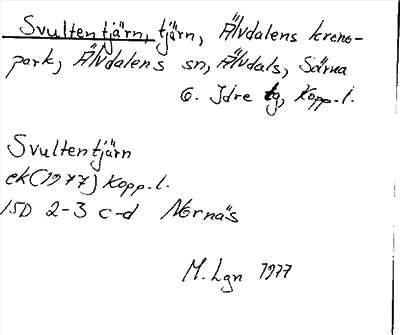 Svultentjärn, tjärn, Älvdalens krono-
park, Älvdalens sn, Älvdals, Särna
o. Idre tg, Kopp. l.
Svultentjärn
ek (1977) Kopp. l.
15D 2-3 c-d Nornäs
M. Lgn 1977